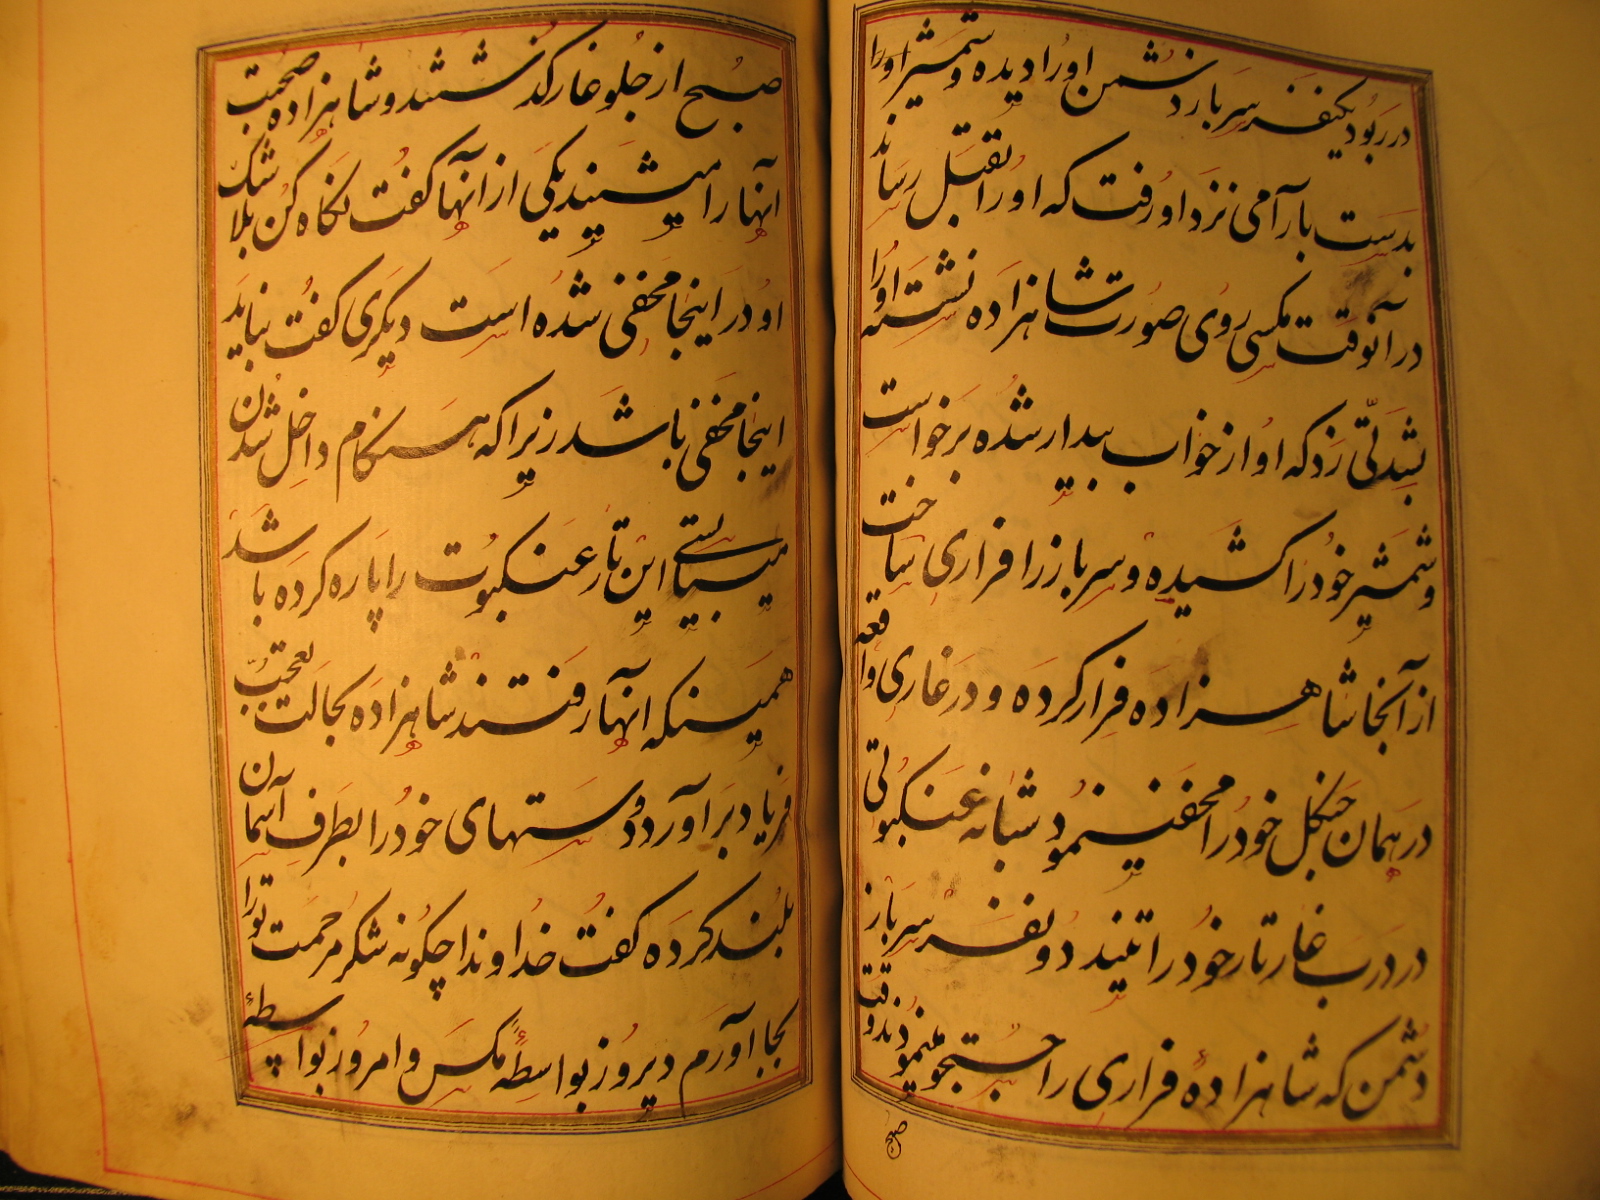 در ربود یکنفر سرباز دشمن اورا دیده و شمشیر اورا
بدست بارآمی نزد او رفت که اورا بقتل رساند
در آنوقت مکسی روی صورت شاهزاده نشسته اورا
بشدتی زد که او از خواب بیدار شده برخواست
و شمشیر خودرا کشیده و سرباز را فراری ساخت
از آنجا شاهزاده فرار کرده و در غاری واقعه
در همان جنکل خودرا مخفی نمود شبانه عنکبوتی
در درب غار تار خودرا تنید دو نفر سرباز
دشمن که شاهزادهٔ فراری را جستجو مینمودند وقت
صبح
صبح از جلو غار کذشتند و شاهزاده صحبت
آنها را میشنید یکی از آنها کفت نکاه کن بلا شک
او در اینجا مخفی شده است دیکری کفت نباید
اینجا مخفی باشد زیرا که هنکام داخل شدن
میبایستی این تار عنکبوت را پاره کرده باشد
همینکه آنها رفتند شاهزاده بحالت تعجب
فریاد بر آورد و دستهای خودرا بطرف آسمان
بلند کرده کفت خداوندا چکونه شکر مرحمت تورا
بجا آورم دیروز بواسطهٔ مکس و امروز بواسطهٔ